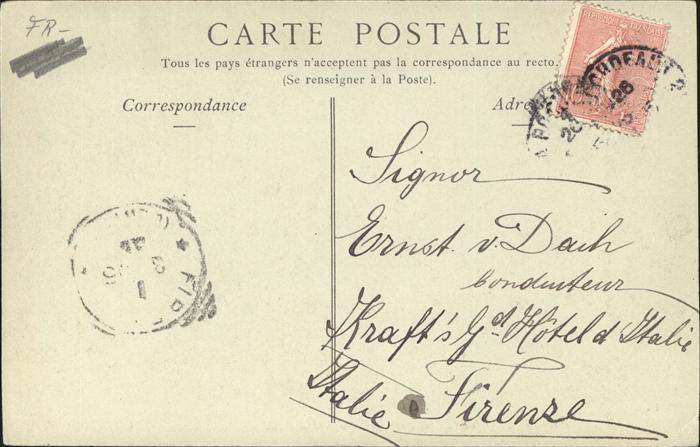 FR-
CARTE POSTALE
Tous les pays étrangers n'acceptent pas la correspondance au recto.
(Se renseigner à la Poste).
Correspondance
REPUBLIQUE FRANÇAISE
BORDEAUX
Signor
Ernst v. Daih
Conducteur
Kraft's Gd Hôtel d Italie
Italie Firenze